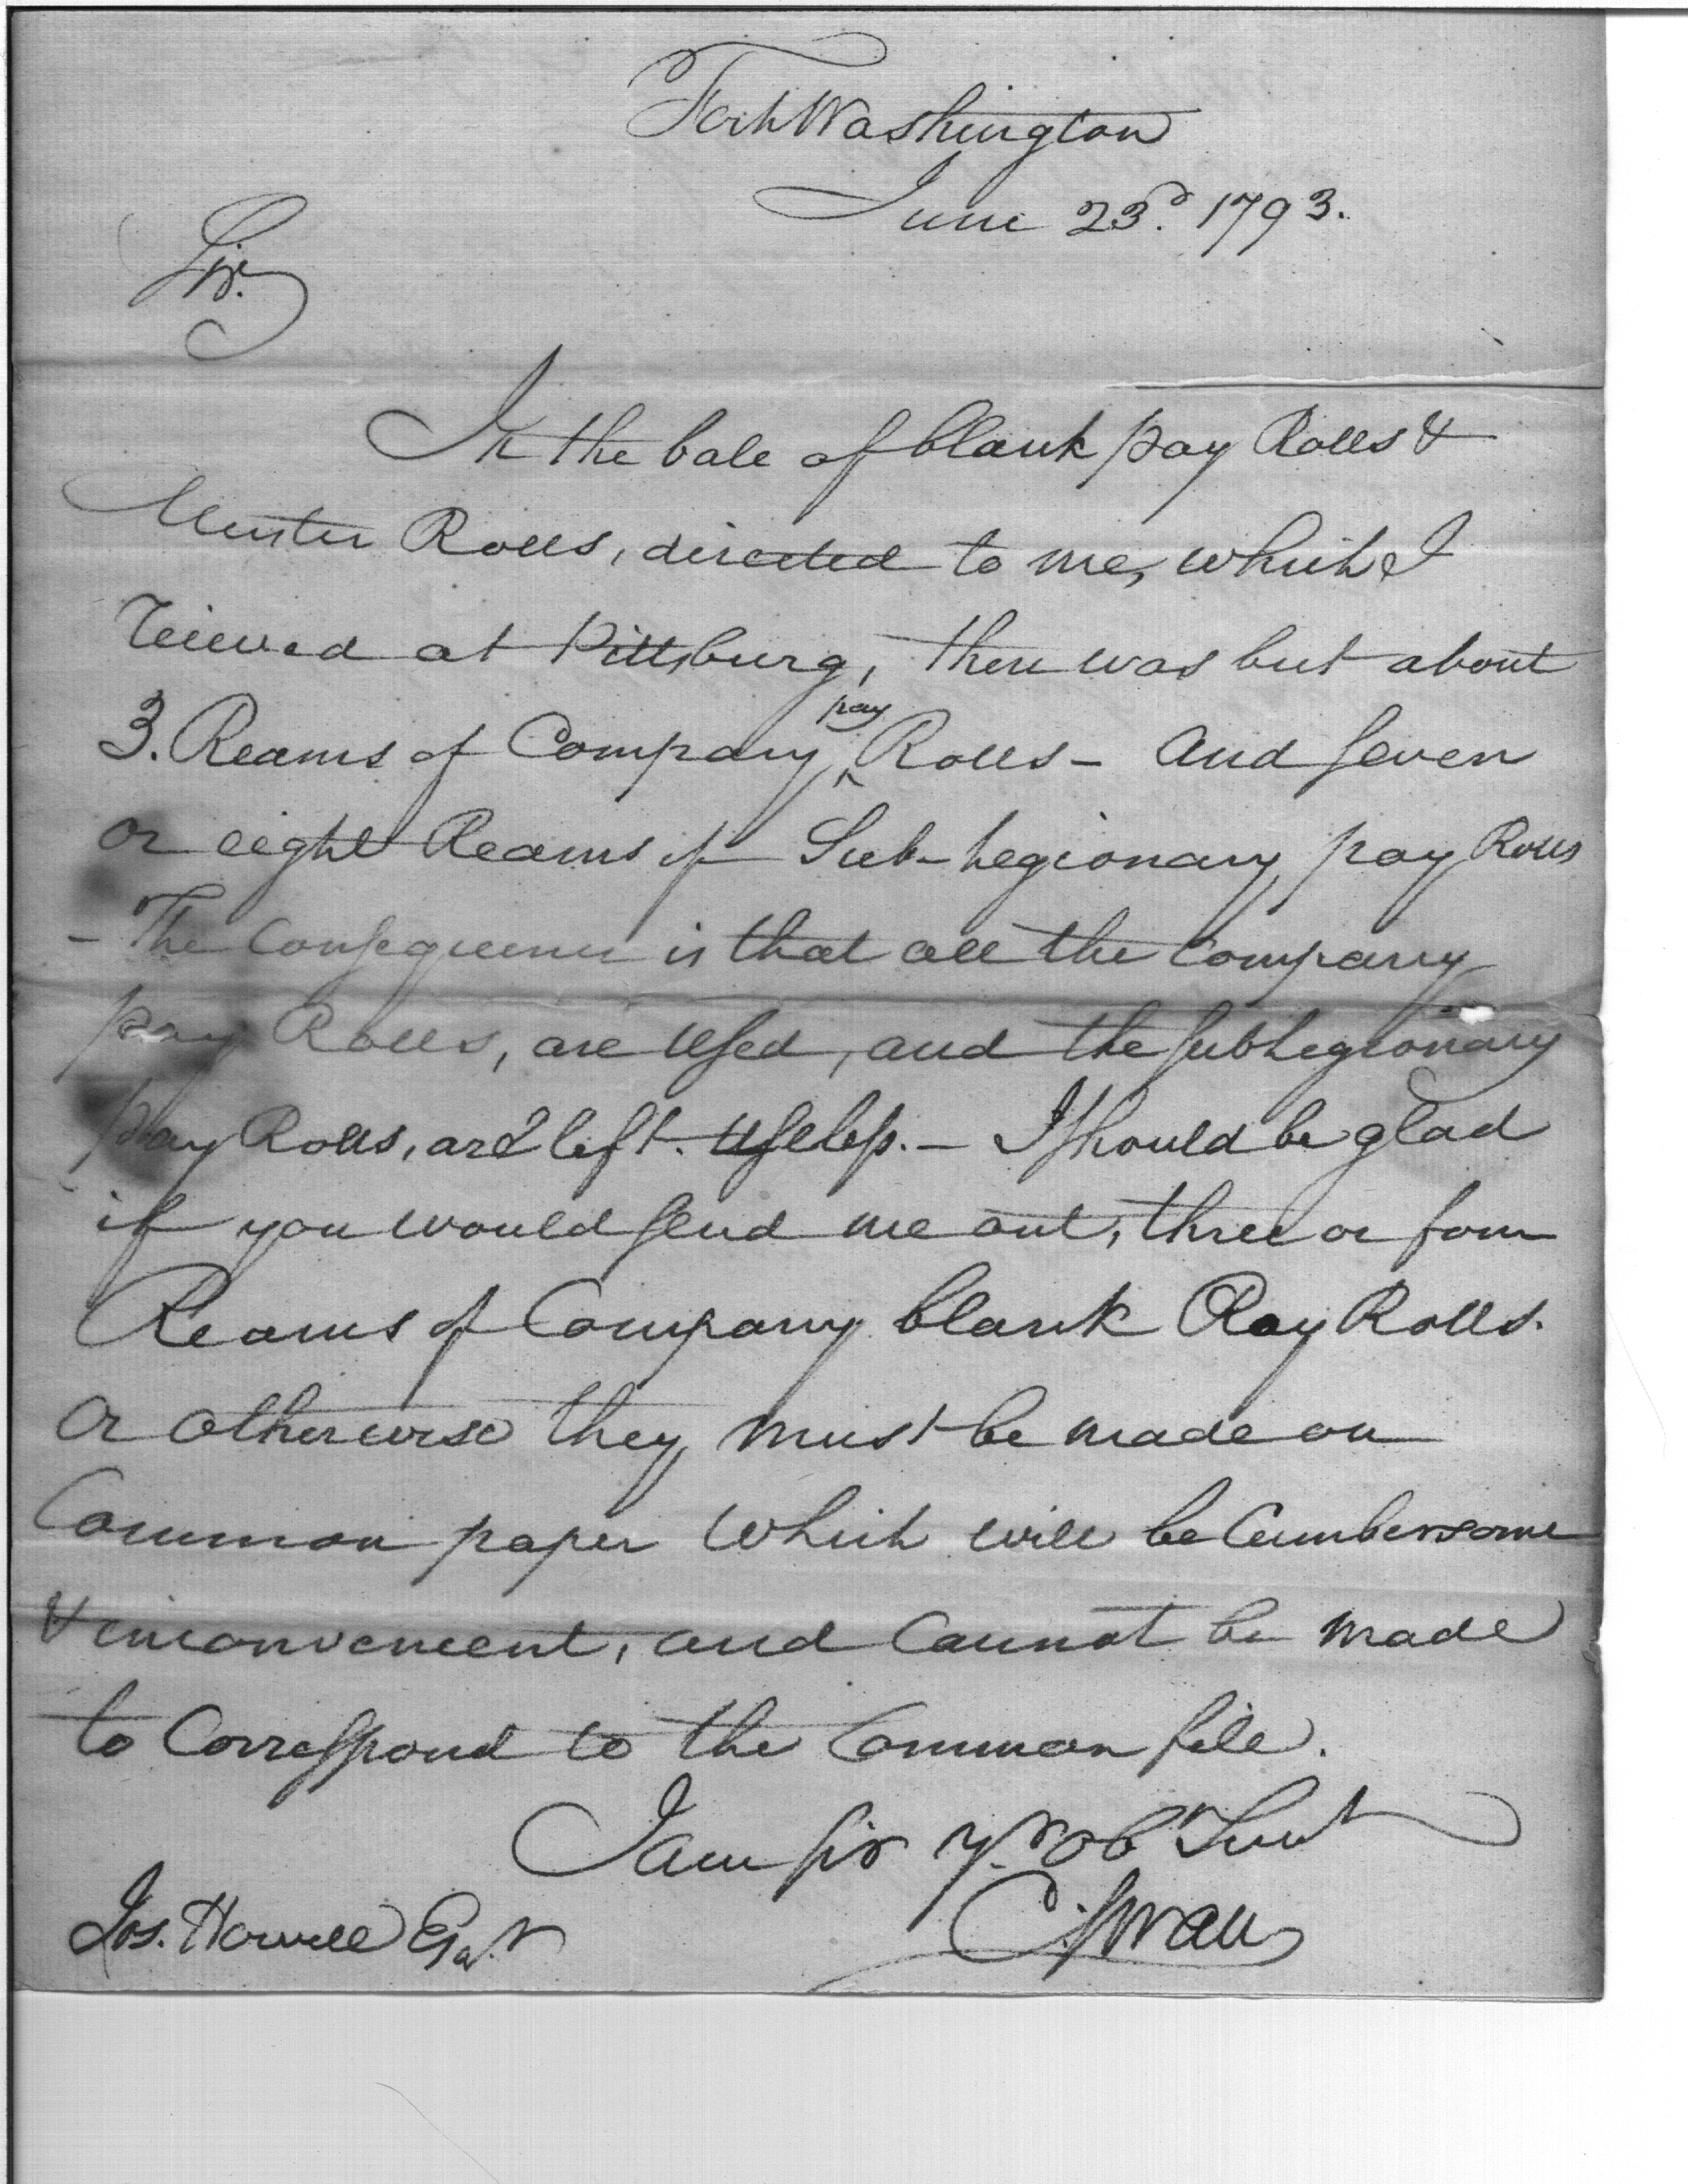 Fort Washington
June 23d. 1793.
Sir.
In the bale of blank pay Rolls &
Muster Rolls, directed to me, which I
reieved at Pittsburg, there was but about
pay
3. Reams of Company ^ Rolls - and seven
or eight Reams of Sub-Legionary pay Rolls
- The Consequence is that all the Company
pay Rolls, are used, and the sub Legionary
pay Rolls, are left. useless. - I should be glad
if you would send me out, three or four
Reams of Company blank Pay Rolls.
or otherwise they must be made on
Common paper which will be Cumbersome
& inconvenient, and Cannot be made
to Correspond to the Common file.
I am sir yr. ob Servt
C: Swan
Jos. Howell Esqr